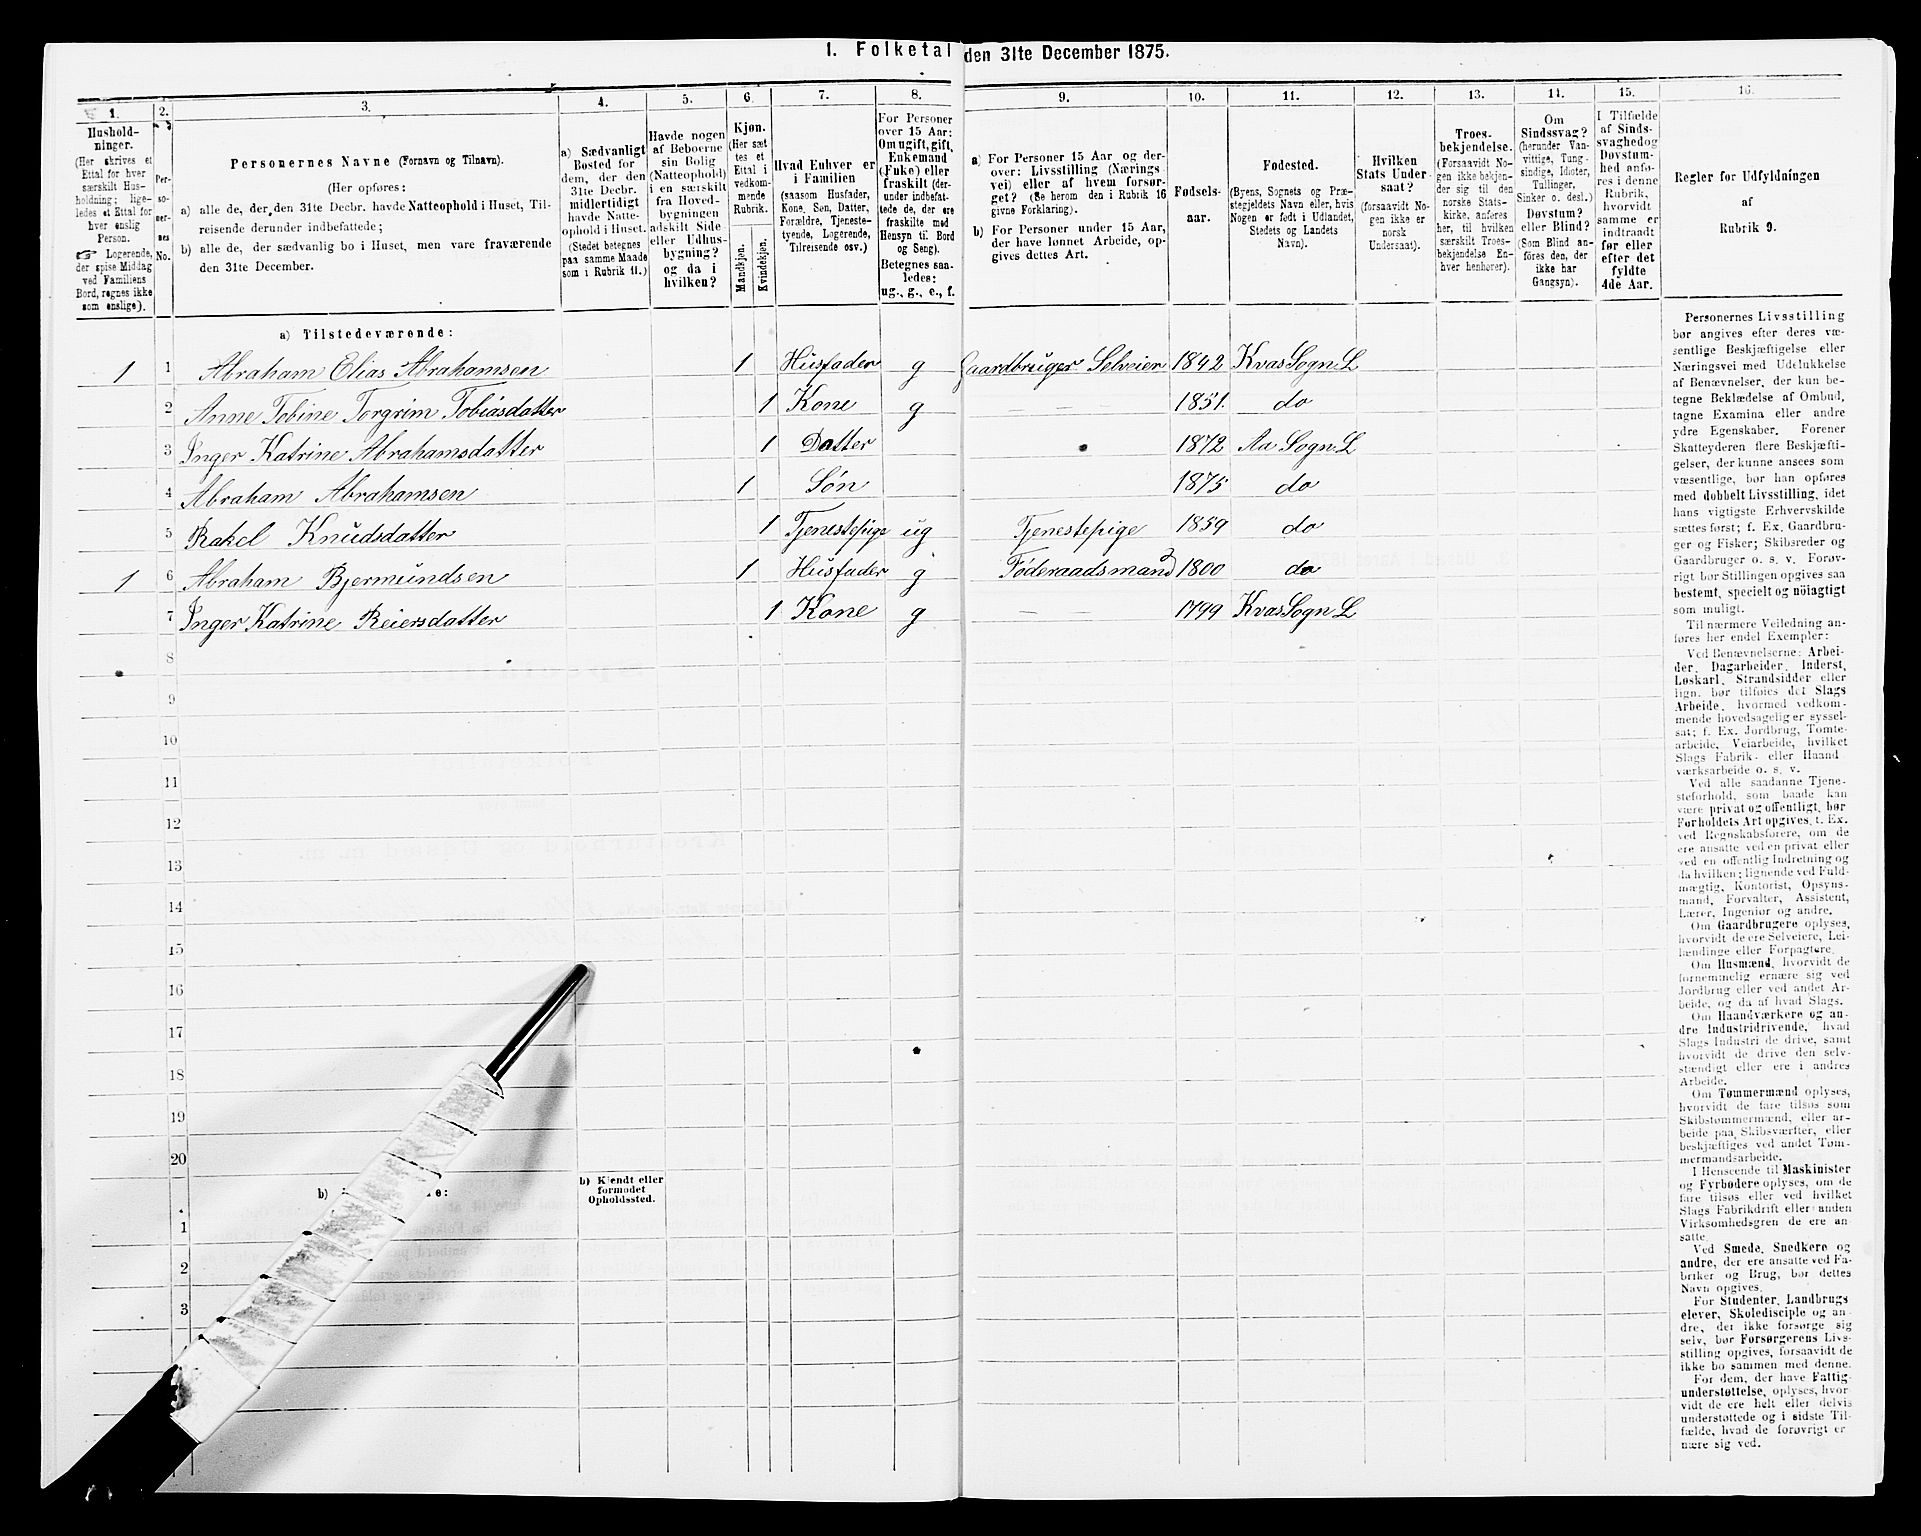 I. Folketal den 31te December 1875.
1. 2. 3. 4. 5. 6. 7. 8. 9. 10. 11. 12. 13. 14. 15. 16.
Hushold-
ninger.
(Her skrives et
Ettal for hver
særskilt Hus-
holdning; lige-
ledes et Ettal for
hver enslig
Person.
☞ Logerende,
der spise Middag
ved Familiens
Bord, regnes ikke
som enslige).
Per-
so-
ner-
nes
No.
Personernes Navne (Fornavn og Tilnavn).
(Her opføres:
a) alle de, der den 31te Decbr. havde Natteophold i Huset, Til-
reisende derunder indbefattede;
b) alle de, der sædvanlig bo i Huset, men vare fraværende
den 31te December.
a) Sædvanligt
Bosted for
dem, der den
31te Decbr.
midlertidigt
havde Natte-
ophold i Huset.
(Stedet betegnes
paa samme Maade
som i Rubrik 11.)
Havde nogen
af Beboerne
sin Bolig
(Natteophold)
i en særskilt
fra Hoved-
bygningen
adskilt Side-
eller Udhus-
bygning?
og da i
hvilken?
Kjøn.
(Her sæt-
tes et
Ettal i
vedkom-
mende
Rubrik.
Mandkjøn.
Kvindekjøn.
Hvad Enhver er
i Familien
(saasom Husfader,
Kone, Søn, Datter,
Forældre, Tjeneste-
tyende, Logerende,
Tilreisende osv.)
For Personer
over 15 Aar:
Om ugift, gift,
Enkemand
(Enke) eller
fraskilt (der-
under indbefat-
tede de, der ere
fraskilte med
Hensyn til Bord
og Seng).
Betegnes saa-
ledes:
ug., g., e., f.
a) For Personer 15 Aar og der-
over: Livsstilling (Nærings-
vei) eller af hvem forsør-
get? (Se herom den i Rubrik 16
givne Forklaring).
b) For Personer under 15 Aar,
der have lønnet Arbeide, op-
gives dettes Art.
Fødsels-
aar.
Fødested.
(Byens, Sognets og Præ-
stegjeldets Navn eller, hvis
Nogen er født i Udlandet,
Stedets og Landets
Navn).
Hvilken
Stats Under-
saat?
(forsaavidt No-
gen ikke er
norsk
Undersaat).
Troes-
bekjendelse.
(Forsaavidt No-
gen ikke bekjen-
der sig til den
norske Stats-
kirke, anføres
her, til hvilken
særskilt Troes-
bekjendelse En-
hver henhører).
Om
Sindssvag?
(herunder Van-
vittige, Tung-
sindige, Idioter,
Tullinger,
Sinker o. desl.)
Døvstum?
eller Blind?
(Som Blind an-
føres den, der
ikke har
Gangsyn).
I Tilfælde
af Sinds-
svaghed og
Døvstum-
hed anfø-
res i denne
Rubrik,
hvorvidt
samme er
indtraadt
før eller
efter det
fyldte
4de Aar.
Regler for Udfyldningen
af
Rubrik 9.
a) Tilstedeværende:
1 1 Abraham Elias Abrahamsen 1 Husfader g Gaardbruger Selveier 1842 Kvas Sogn. L
2 Anne Tobine Torgrim Tobiasdatter 1 Kone g — — 1851. do
3 Inger Katrine Abrahamsdatter 1 Datter 1872 Aa Sogn. L
4 Abraham Abrahamsen 1 Søn 1875 do
5 Rakel Knudsdatter 1 Tjenestepige ug Tjenestepige 1859 do
1 6 Abraham Bjermundsen 1 Husfader g Føderaadsmand 1800 do
7 Inger Katrine Reiersdatter 1 Kone g — — 1799 Kvas Sogn. L
8
9
10
11
12
13
14
15
16
17
18
19
20
b)
b) Kjendt eller
formodet
Opholdssted.
1
2
3
Personernes Livsstilling
bør angives efter deres væ-
sentlige Beskjæftigelse eller
Næringsvei med Udelukkelse
af Benævnelser, der kun be-
tegne Beklædelse af Ombud,
tagne Examina eller andre
ydre Egenskaber. Forener
Skatteyderen flere Beskjæfti-
gelser, der kunne ansees som
væsentlige, bør han opføres
med dobbelt Livsstilling, idet
hans vigtigste Erhvervskilde
sættes først; f. Ex. Gaardbru-
ger og Fisker; Skibsreder og
Gaardbruger o. s. v. Forøv-
rigt bør Stillingen opgives saa
bestemt, specielt og nöiagtigt
som muligt.
Til nærmere Veiledning an-
føres her endel Exempler:
Ved Benævnelserne: Arbei-
der, Dagarbeider, Inderst,
Løskarl, Strandsidder eller
lign. bør tilføies det Slags
Arbeide, hvormed vedkom-
mende hovedsagelig er syssel-
sat; f. Ex. Jordbrug, Tomte-
arbeide, Veiarbeide, hvilket
Slags Fabrik- eller Haand-
værksarbeide o. s. v.
Ved alle saadanne Tjene-
steforhold, som baade kan
være privat og offentligt, bør
Forholdets Art opgives, f. Ex.
ved Regnskabsførere, om de
ere ansatte ved en privat eller
ved en offentlig Indretning og
da hvilken; lignende ved Fuld-
mægtig, Kontorist, Opsyns-
mand, Forvalter, Assistent,
Lærer, Ingeniør og andre.
Om Gaardbrugere oplyses,
hvorvidt de ere Selveiere, Lei-
lændinge eller Forpagtere.
Om Husmænd, hvorvidt de
fornemmelig ernære sig ved
Jordbrug eller ved andet Ar-
beide, og da af hvad Slags.
Om Haandværkere og an-
dre Industridrivende, hvad
Slags Industri de drive, samt
hvorvidt de drive den selv-
stændigt eller ere i andres
Arbeide.
Om Tømmermænd oplyses,
hvorvidt de fare tilsøs som
Skibstømmermænd, eller ar-
beide paa Skibsværfter, eller
beskjæftiges ved andet Tøm-
mermandsarbeide.
I Henseende til Maskinister
og Fyrbødere oplyses, om de
fare tilsøs eller ved hvilket
Slags Fabrikdrift eller anden
Virksomhedsgren de ere an-
satte.
Ved Smede, Snedkere og
andre, der ere ansatte ved Fa-
briker og Brug, bør dettes
Navn opgives.
For Studenter, Landbrugs-
elever, Skoledisciple og an-
dre, der ikke forsørge sig
selv, bør Forsørgerens Livs-
stilling opgives, forsaavidt de
ikke bo sammen med denne.
For dem, der have Fattig-
understøttelse, oplyses, hvor-
vidt de ere helt eller delvis
understøttede og i sidste Til-
fælde, hvad de forøvrigt er-
nære sig ved.